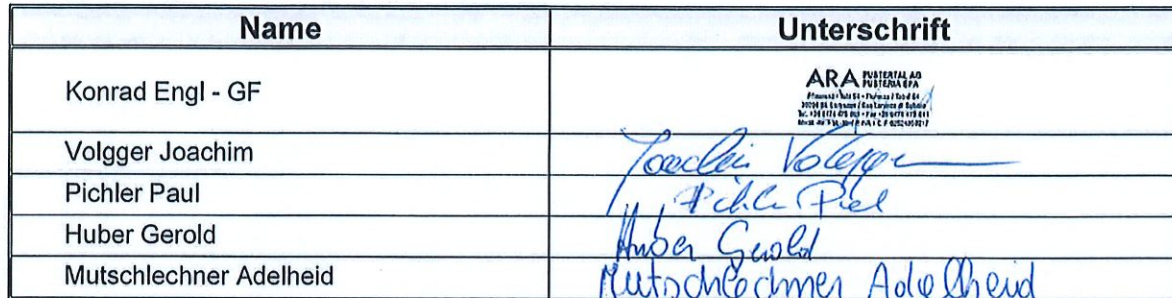 Name Unterschrift
Konrad Engl - GF
ARA PUSTERTAL AG
PUSTERIA SPA
Volgger Joachim Joachim Volgger
Pichler Paul Pichler Paul
Huber Gerold Huber Gerold
Mutschlechner Adelheid Mutschlechner Adelheid